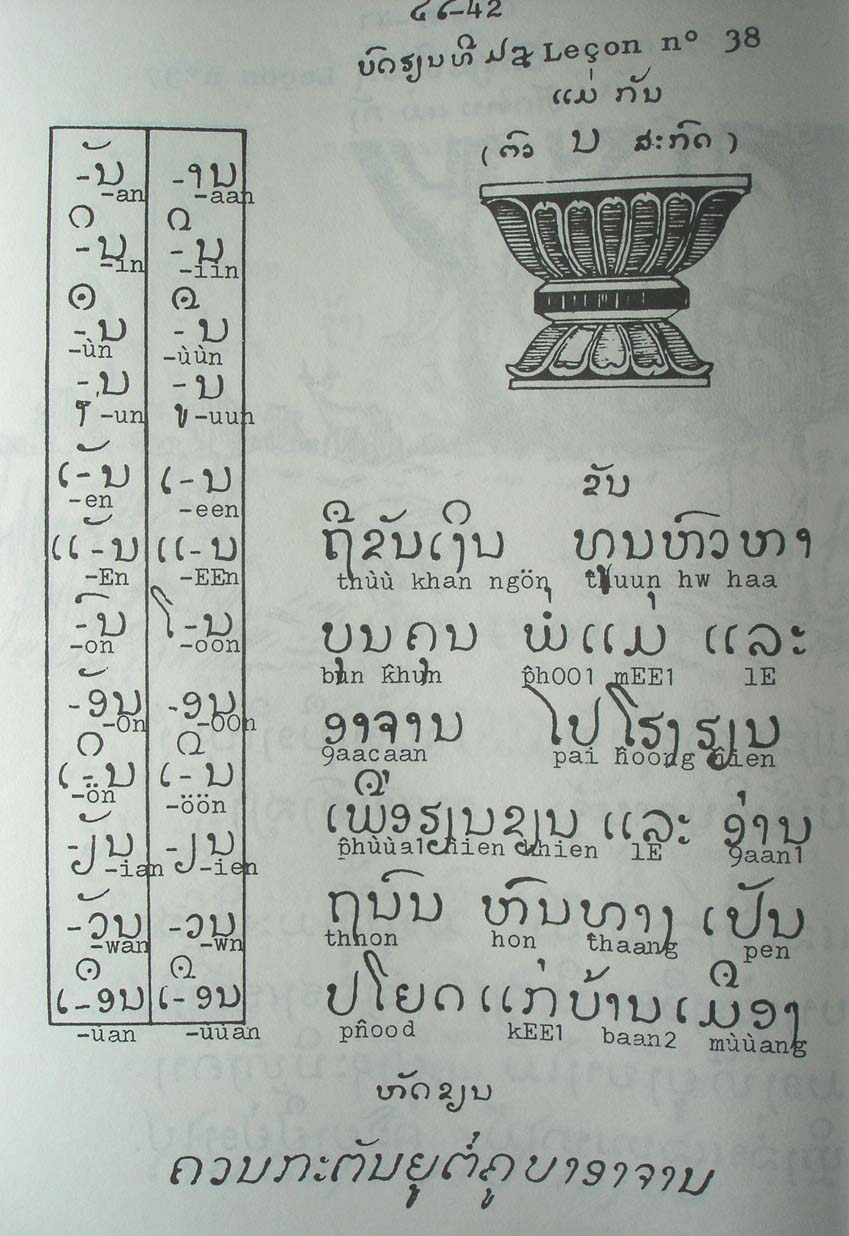 ໔໒–42
ບົດຮຽນທີ ໓໘ Leçon nº 38
ແມ່ ກັນ
(ຕົວ ນ ສະກົດ)
-ັນ -an -ານ -aan
-ິນ -in -ີນ -iin
-ຶນ -ùn -ືນ -ùùn
-ຸນ -un -ູນ -uun
ເ-ັນ -en ເ-ນ -een
ແ-ັນ -En ແ-ນ -EEn
-ົນ -on ໂ-ນ -oon
-ອັນ -On -ອນ -OOn
ເ-ິນ -ön ເ-ີນ -öön
-ຽັນ -ian -ຽນ -ien
-ວັນ -wan -ວນ -wn
ເ-ຶອນ -ùan ເ-ືອນ -ùùan
ຂັນ
ຖືຂັນເງິນ ທູນຫົວຫາ
thùù khan ngön thuun hw haa
ບຸນຄຸນ ພໍ່ ແມ່ ແລະ
bun khun phOO1 mEE1 lE
ອາຈານ ໄປໂຮງຮຽນ
9aacaan pai hoong hien
ເພື່ອຮຽນຂຽນ ແລະ ອ່ານ
phùùa1 hien khien lE 9aan1
ຖນົນ ຫົນທາງ ເປັນ
thnon hon thaang pen
ປໂຍດ ແກ່ບ້ານເມືອງ
pñood kEE1 baan2 mùùang
ຫັດຂຽນ
ຄວນກະຕັນຍູຕໍ່ຄູບາອາຈານ